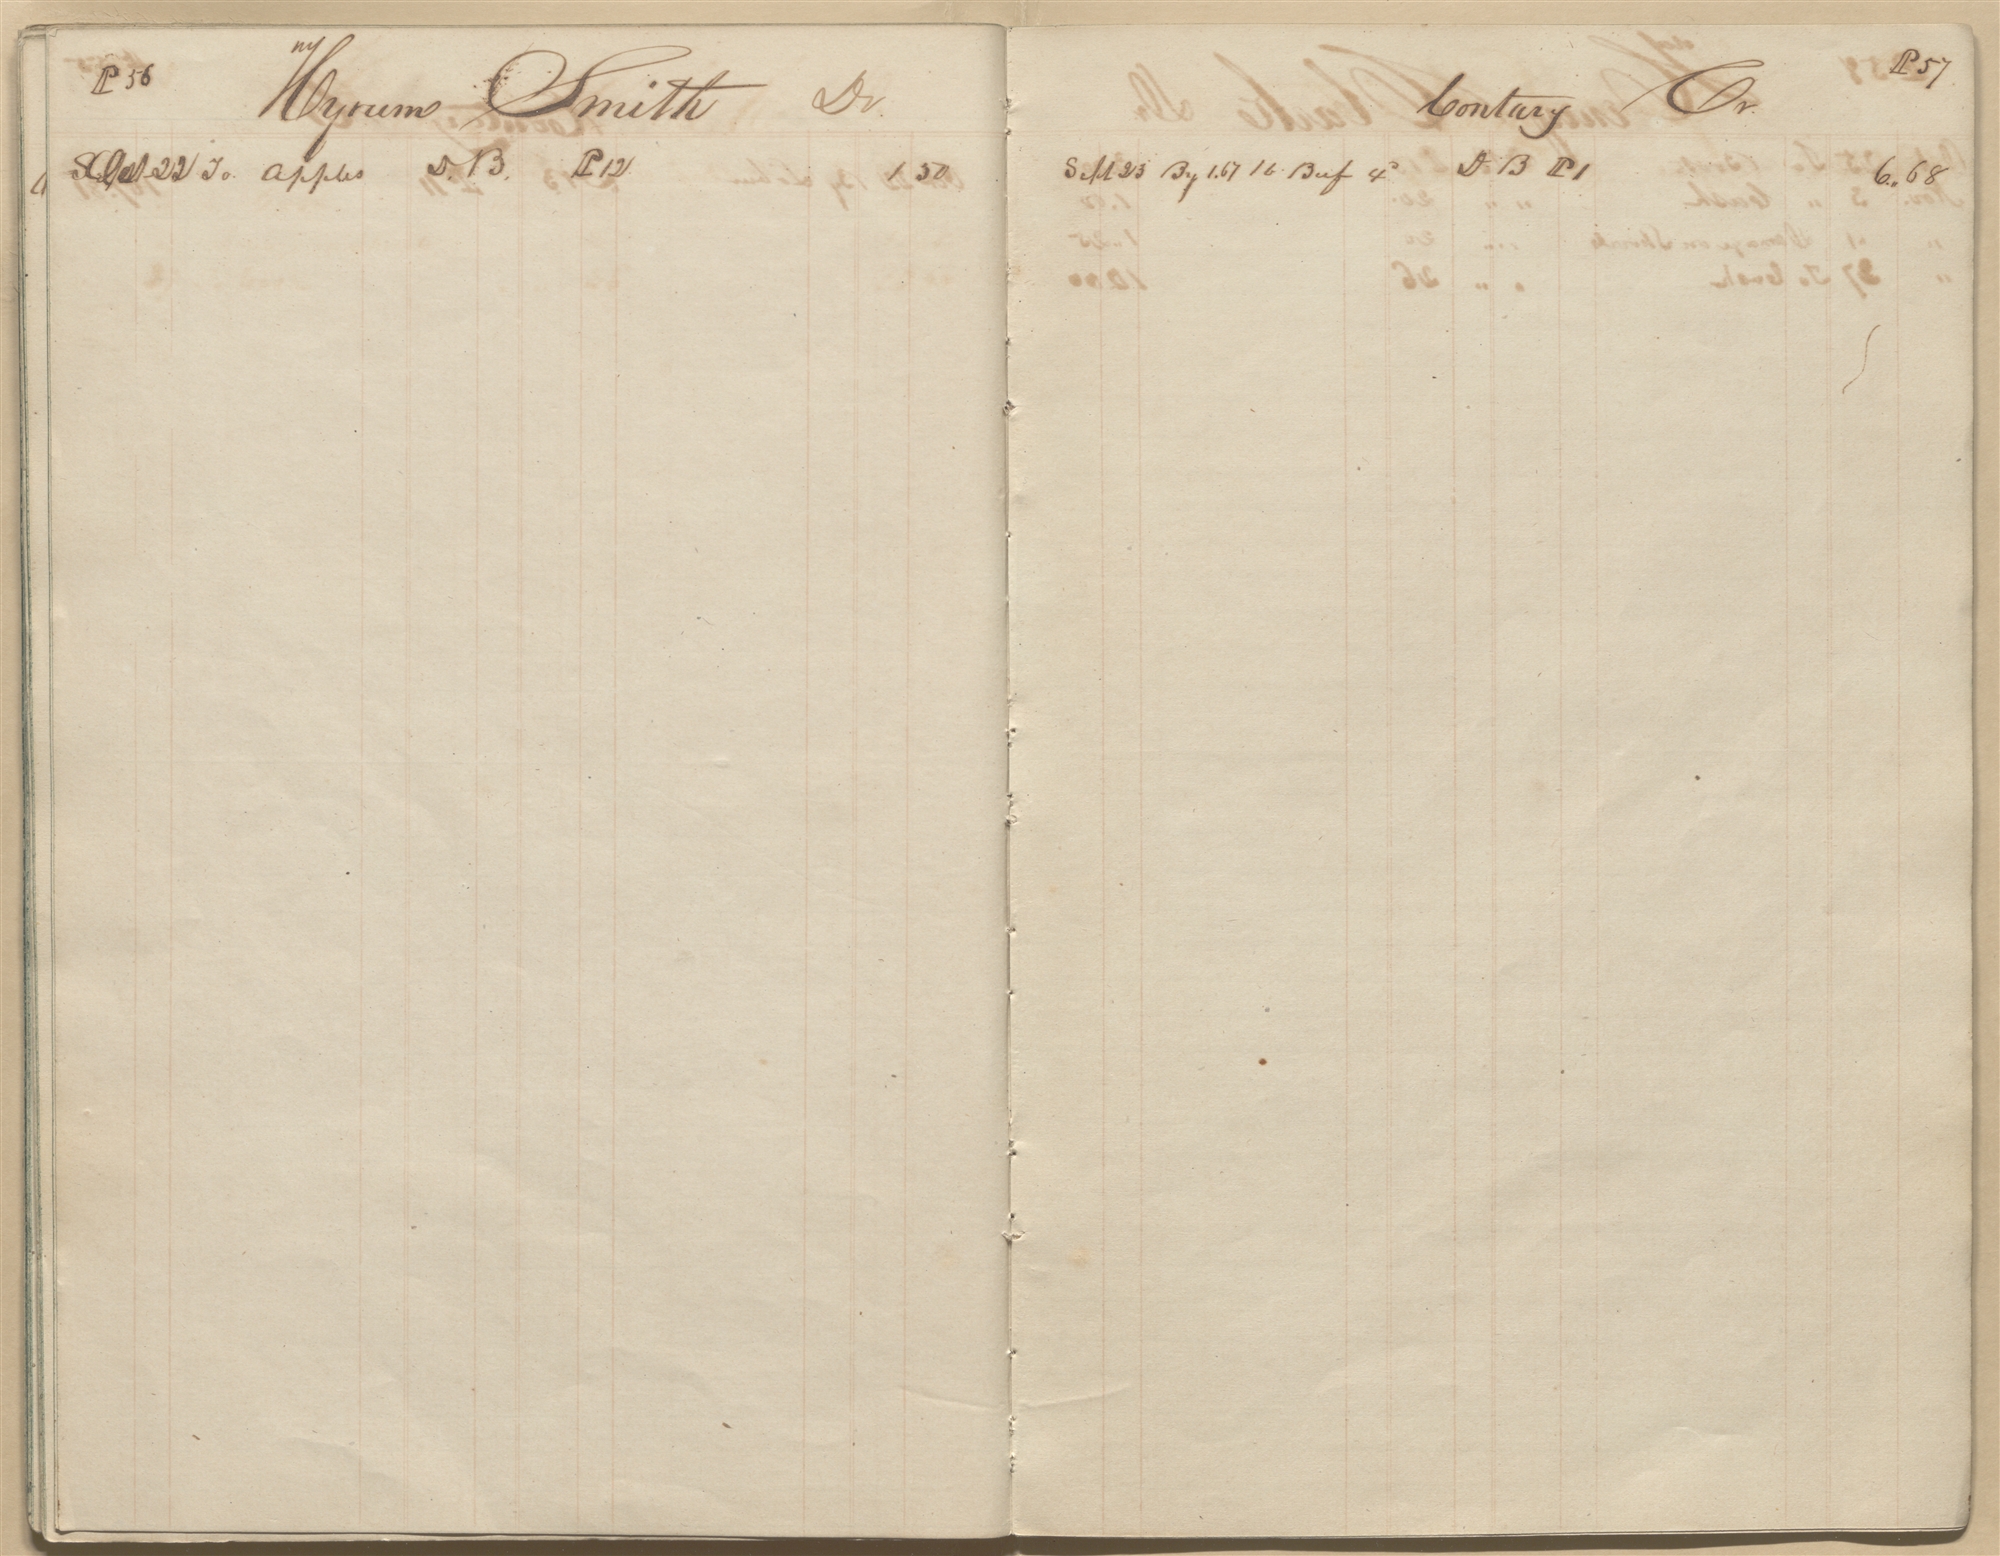 P 56
ny
Hyrum Smith Dr.
Oct 22 To apples D. B. P 12 1 50
P 57
Contary Cr.
Sept 23 By 1.67 lb Beef 4c D B P 1 6.. 68